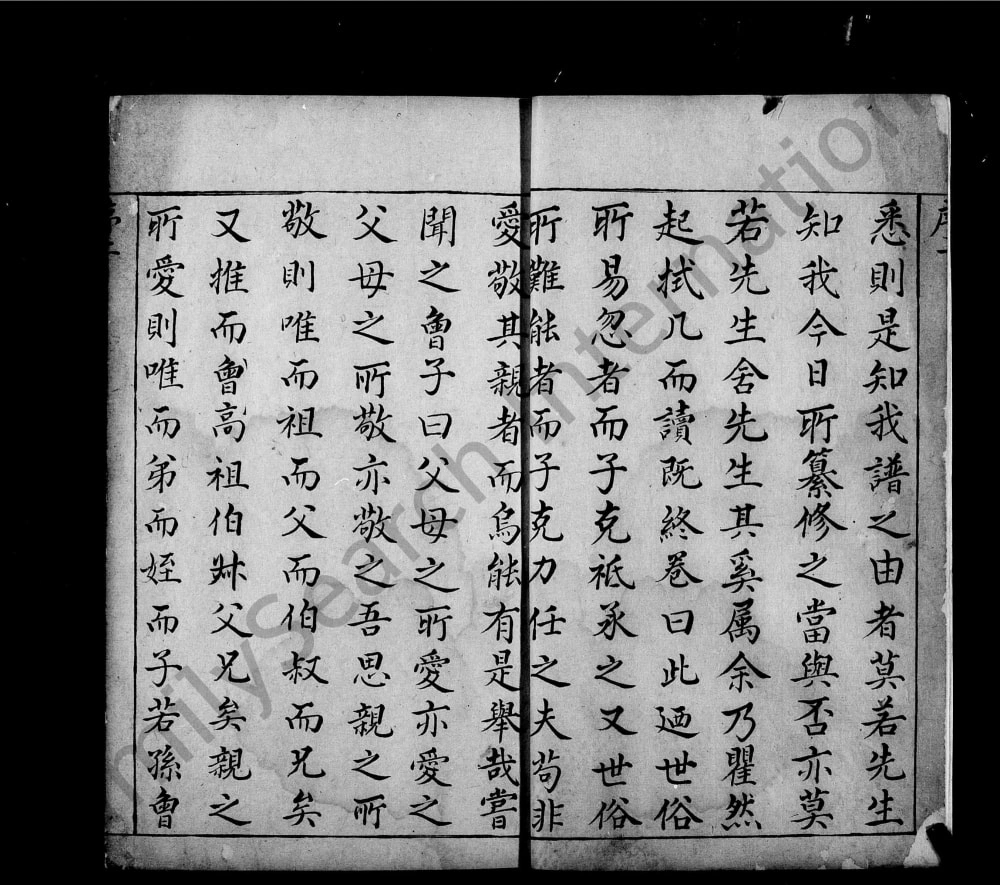 悉則是知我譜之由者莫若先生
知我今日所纂修之當與否亦莫
若先生舍先生其奚属余乃瞿然
起拭几而讀既終卷曰此迺世俗
所易忽者而子克祗承之又世俗
所難能者而子克力任之夫苟非
愛敬其親者而烏能有是舉哉嘗
聞之曾子曰父母之所愛亦愛之
父母之所敬亦敬之吾思親之所
敬則唯而祖而父而伯叔而兄矣
又推而曾高祖伯叔父兄矣親之
所愛則唯而弟而姪而子若孫曾
FamilySearch International